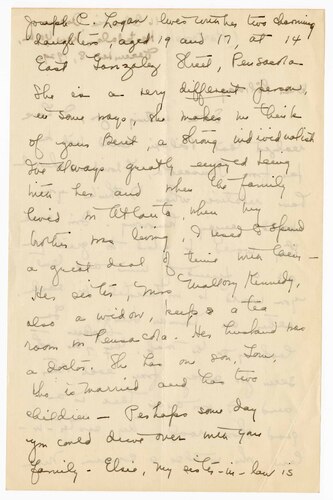 Joseph C. Logan lives with her two charming
daughters, aged 19 and 17, at 14
East Gonzalez Street, Pensacola
She is a very different person,
in some ways, she makes me think
of your Beret, a strong individualist
I've always greatly enjoyed being
with her and when the family
lived in Atlanta, when my
brother was living, I used to spend
a great deal of time with them –
Her sister, Mrs Mallory Kennedy,
also a widow, keeps a tea
room in Pensacola. Her husband was
a doctor. She has one son,
who is married and has two
children – Perhaps some day
you could drive over with your
family – Elsie, my sister-in-law is